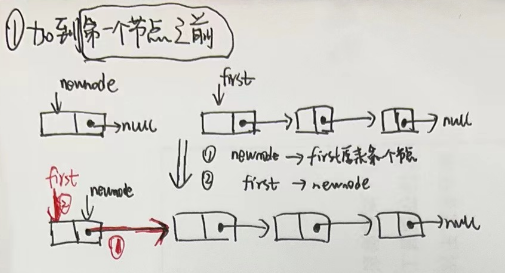 ① 加到第一个节点之前
newnode
first
null
null
① newnode → first原来第一个节点
② first → newnode
first
②
newnode
①
null